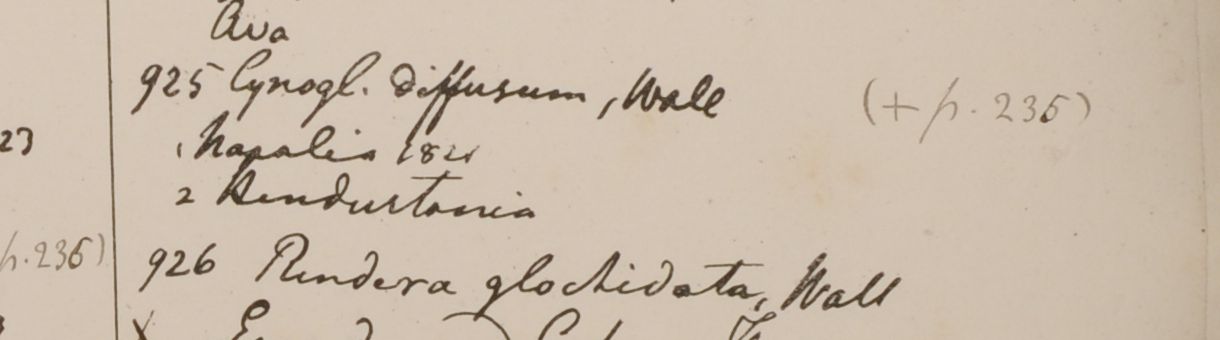 Ava
925 Cynogl. diffusum, Wall (+ p. 236)
23
1 Napalia 1821
2 Hindustania
p. 236)
926 Rindera glochidata, Wall